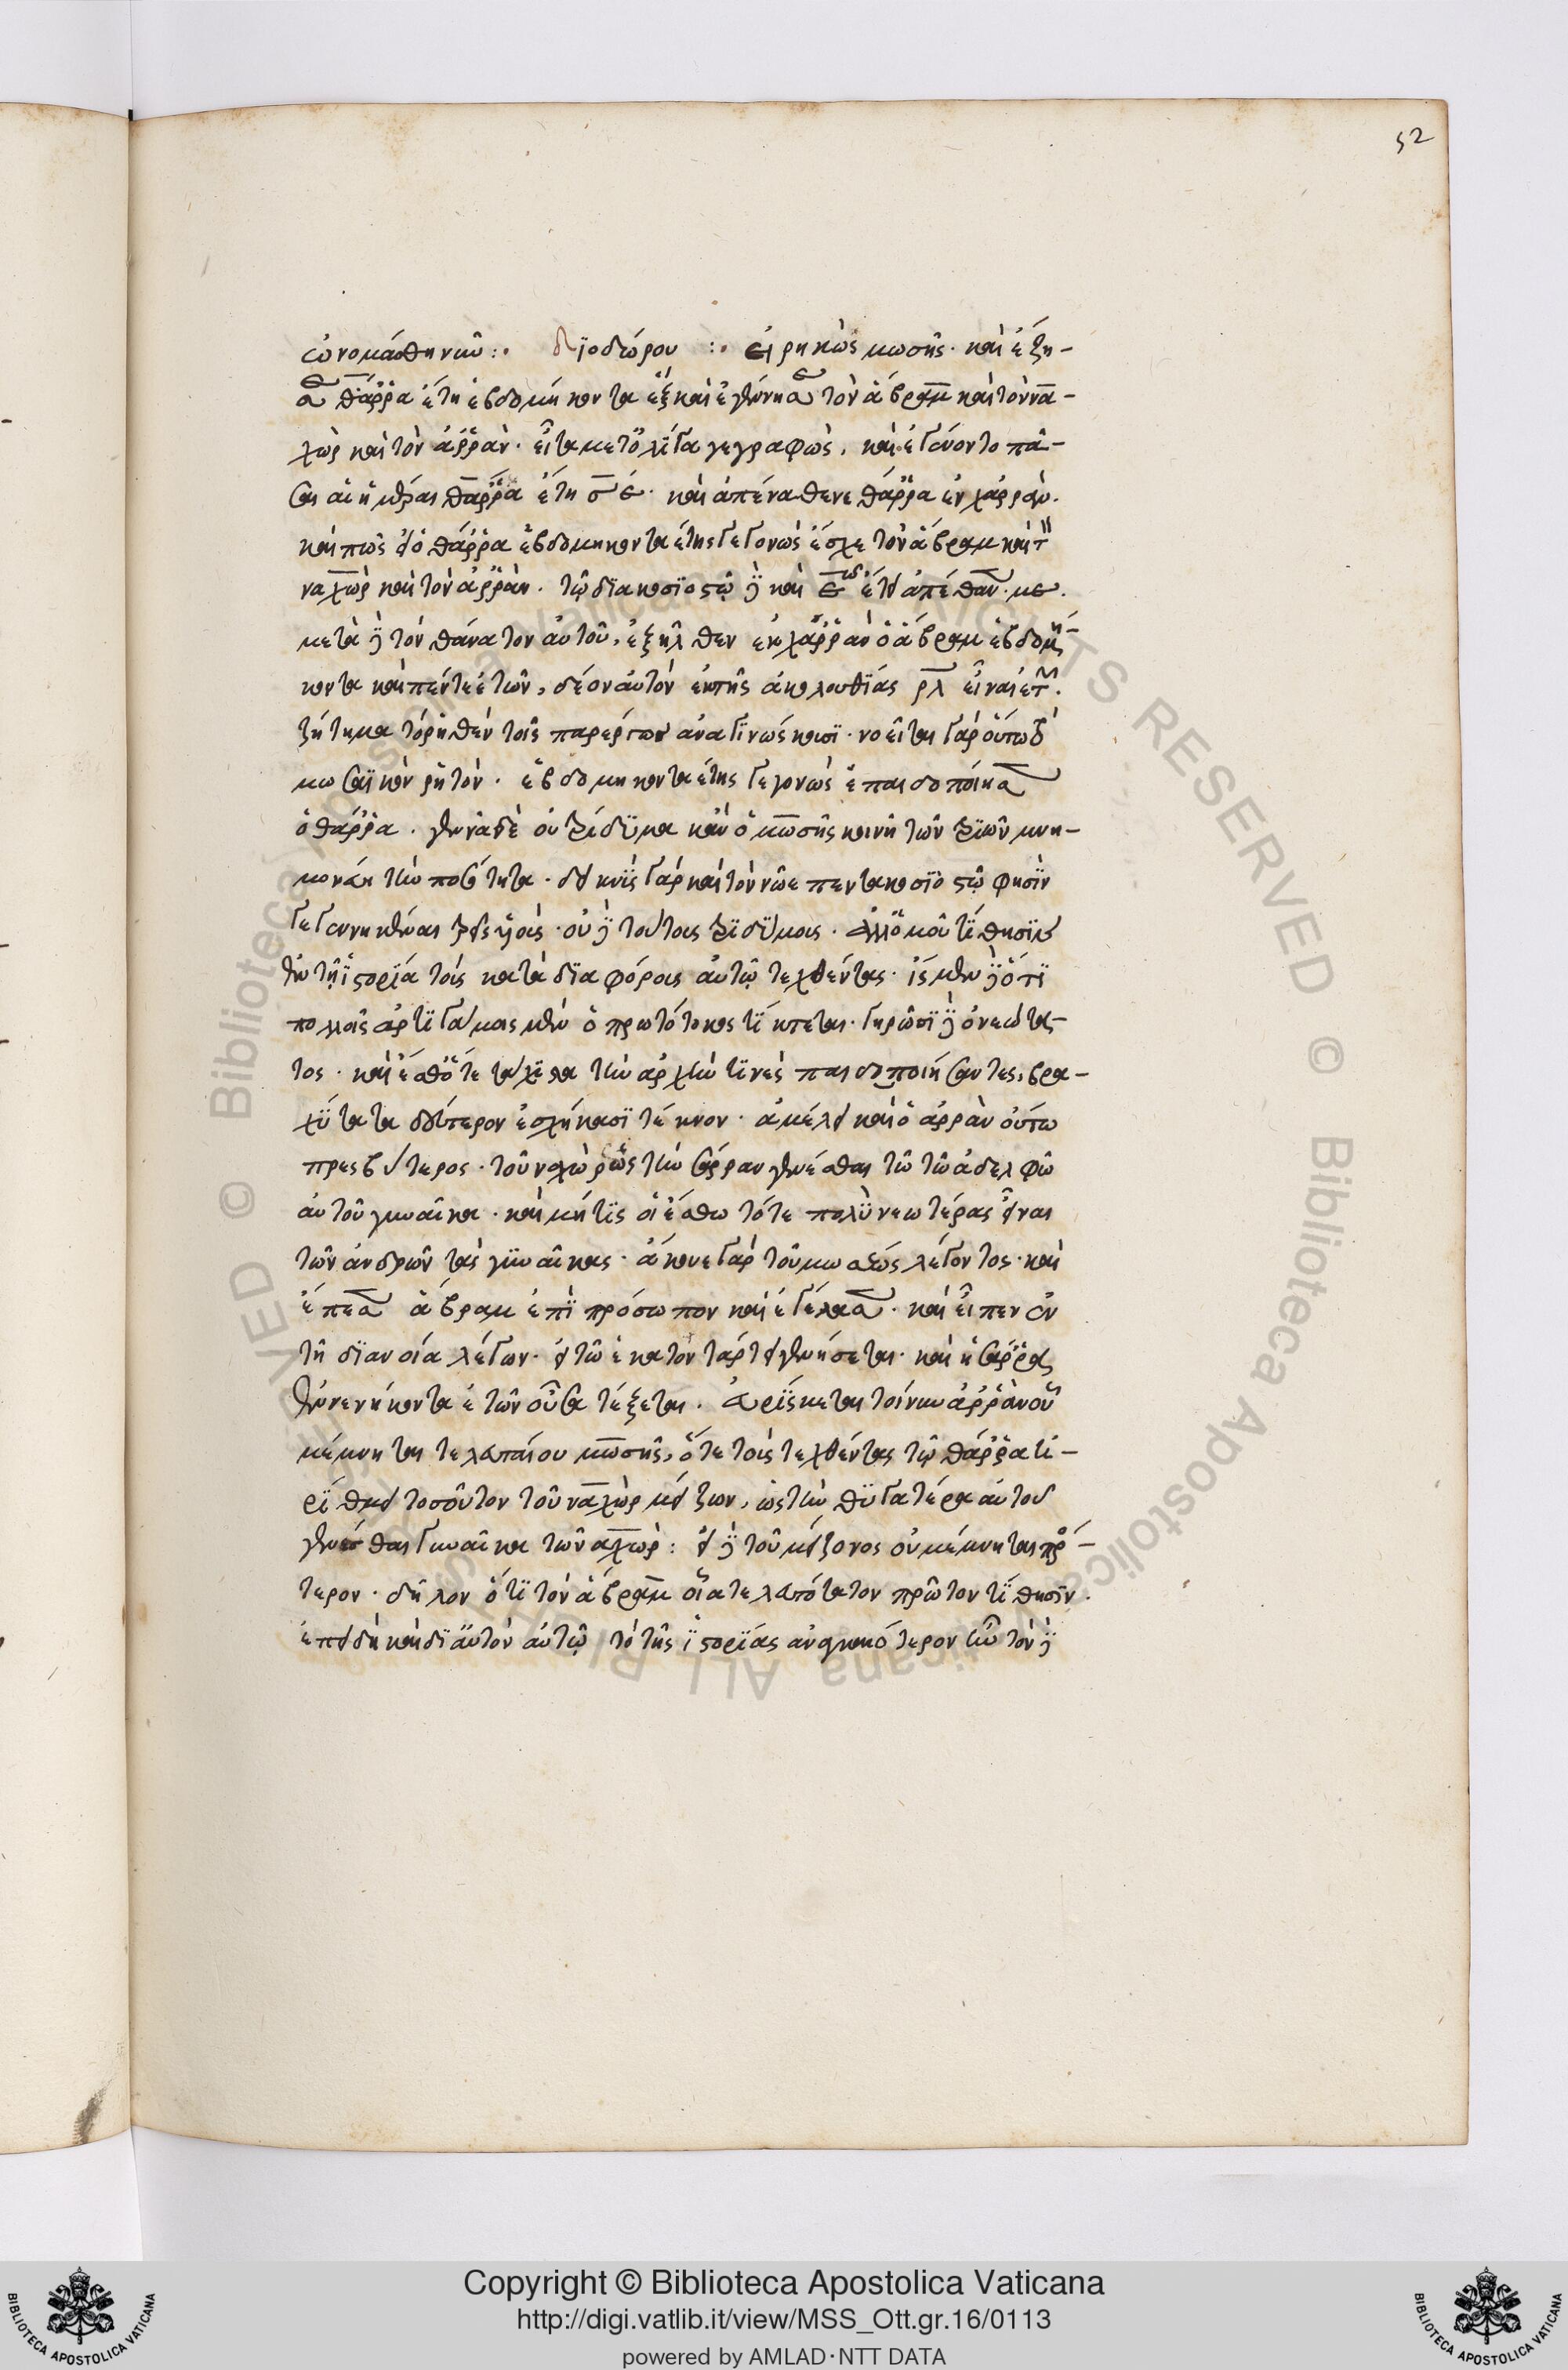 52
ὠνομάσθη νῦν :· διοδώρου :· εἰρηκὼς μωσῆς· καὶ ἔζη-
σε θάρρα ἔτη ἑβδομήκοντα ἓξ καὶ ἐγέννησε τὸν ἄβραμ καὶ τὸν να-
χὼρ καὶ τὸν ἀρρὰν· εἶτα μετ' ὀλίγα γεγραφὼς, καὶ ἐγένοντο πᾶ-
σαι αἱ ἡμέραι θάρρα ἔτη σ ε· καὶ ἀπέθανε θάρρα ἐν χαρράν.
καὶ πῶς εἰ ὁ θάρρα ἑβδομηκονταέτης γεγονὼς ἔσχε τὸν ἄβραμ καὶ τὸν
ναχὼρ καὶ τὸν ἀρρὰν· τῷ διακοσιοστῷ δὲ καὶ ε ἔτει ἀπέθανε·
μετὰ δὲ τὸν θάνατον αὐτοῦ, ἐξῆλθεν ἐκ χαρρὰν ὁ ἄβραμ ἑβδομή-
κοντα καὶ πέντε ἐτῶν, δέον αὐτὸν ἐκ τῆς ἀκολουθίας ρλ εἶναι ἐτῶν.
ζήτημα τὸ ῥηθὲν τοῖς παρέργως ἀναγινώσκουσι· νοεῖται γὰρ οὕτω τὸ
μωσαϊκὸν ῥητὸν· ἑβδομηκονταέτης γεγονὼς ἐπαιδοποίησε
ὁ θάρρα· γεννᾷ δὲ οὐ τρίδυμα κἂν ὁ μωσῆς κοινῇ τῶν τριῶν μνη-
μονεύῃ τὴν ποσότητα· δείκνυσι γὰρ καὶ τὸν νῶε πεντακοσιοστῷ φησὶν
γεγεννηκέναι τρεῖς υἱοὺς· οὐ δὲ τούτους τριδύμους· ἀλλ' ὁμοῦ τίθησιν
ἐν τῇ ἱστορία τοὺς κατὰ διαφόρους αὐτῷ τεχθέντας· ἴσμεν δὲ ὅτι
πολλοῖς ἀρτιγάμοις μὲν ὁ πρωτότοκος τίκτεται· γηρῶσι δὲ ὁ νεώτα-
τος· καὶ ἔσθ' ὅτε τάχιστα τὴν ἀρχὴν τινὲς παιδοποιήσαντες, βρα-
χύτατα δεύτερον ἐσχήκασι τέκνον· ἀμέλει καὶ ὁ ἀρρὰν οὕτω
πρεσβύτερος· τοῦ ναχὼρ ὡς τὴν σάρραν γενέσθαι τῶ τῶ ἀδελφῶ
αὐτοῦ γυναῖκα· καὶ μή τις οἰέσθω τότε πολὺ νεωτέρας εἶναι
τῶν ἀνδρῶν τὰς γυναῖκας· ἄκουε γὰρ τοῦ μωσέως λέγοντος· καὶ
ἔπεσε ἄβραμ ἐπὶ πρόσωπον καὶ ἐγέλασε· καὶ εἶπεν ἐν
τῇ διανοία λέγων· εἰ τῶ ἑκατονταετεῖ γενήσεται· καὶ ἡ σάρρα
ἐνενήκοντα ἐτῶν οὖσα τέξεται. εὑρίσκεται τοίνυν ἀρρὰν οὗ
μέμνηται τελευταίου μωσῆς, ὅτε τοὺς τεχθέντας τῷ θάρρα
ἠρίθμει τοσοῦτον τοῦ ναχὼρ μείζων, ὡς τὴν θυγατέρα αὐτοῦ
γενέσθαι γυναῖκα τῶ ναχὼρ : εἰ δὲ τοῦ μείζονος οὐ μέμνηται πρό-
τερον· δῆλον ὅτι τὸν ἄβραμ οἷα τελευτότατον πρῶτον τίθησιν.
ἐπειδὴ καὶ δι' αὐτὸν αὐτῷ τὸ τῆς ἱστορίας ἀναγκαιότερον ἦν τὸν δὲ
Copyright © Biblioteca Apostolica Vaticana
http://digi.vatlib.it/view/MSS_Ott.gr.16/0113
powered by AMLAD·NTT DATA